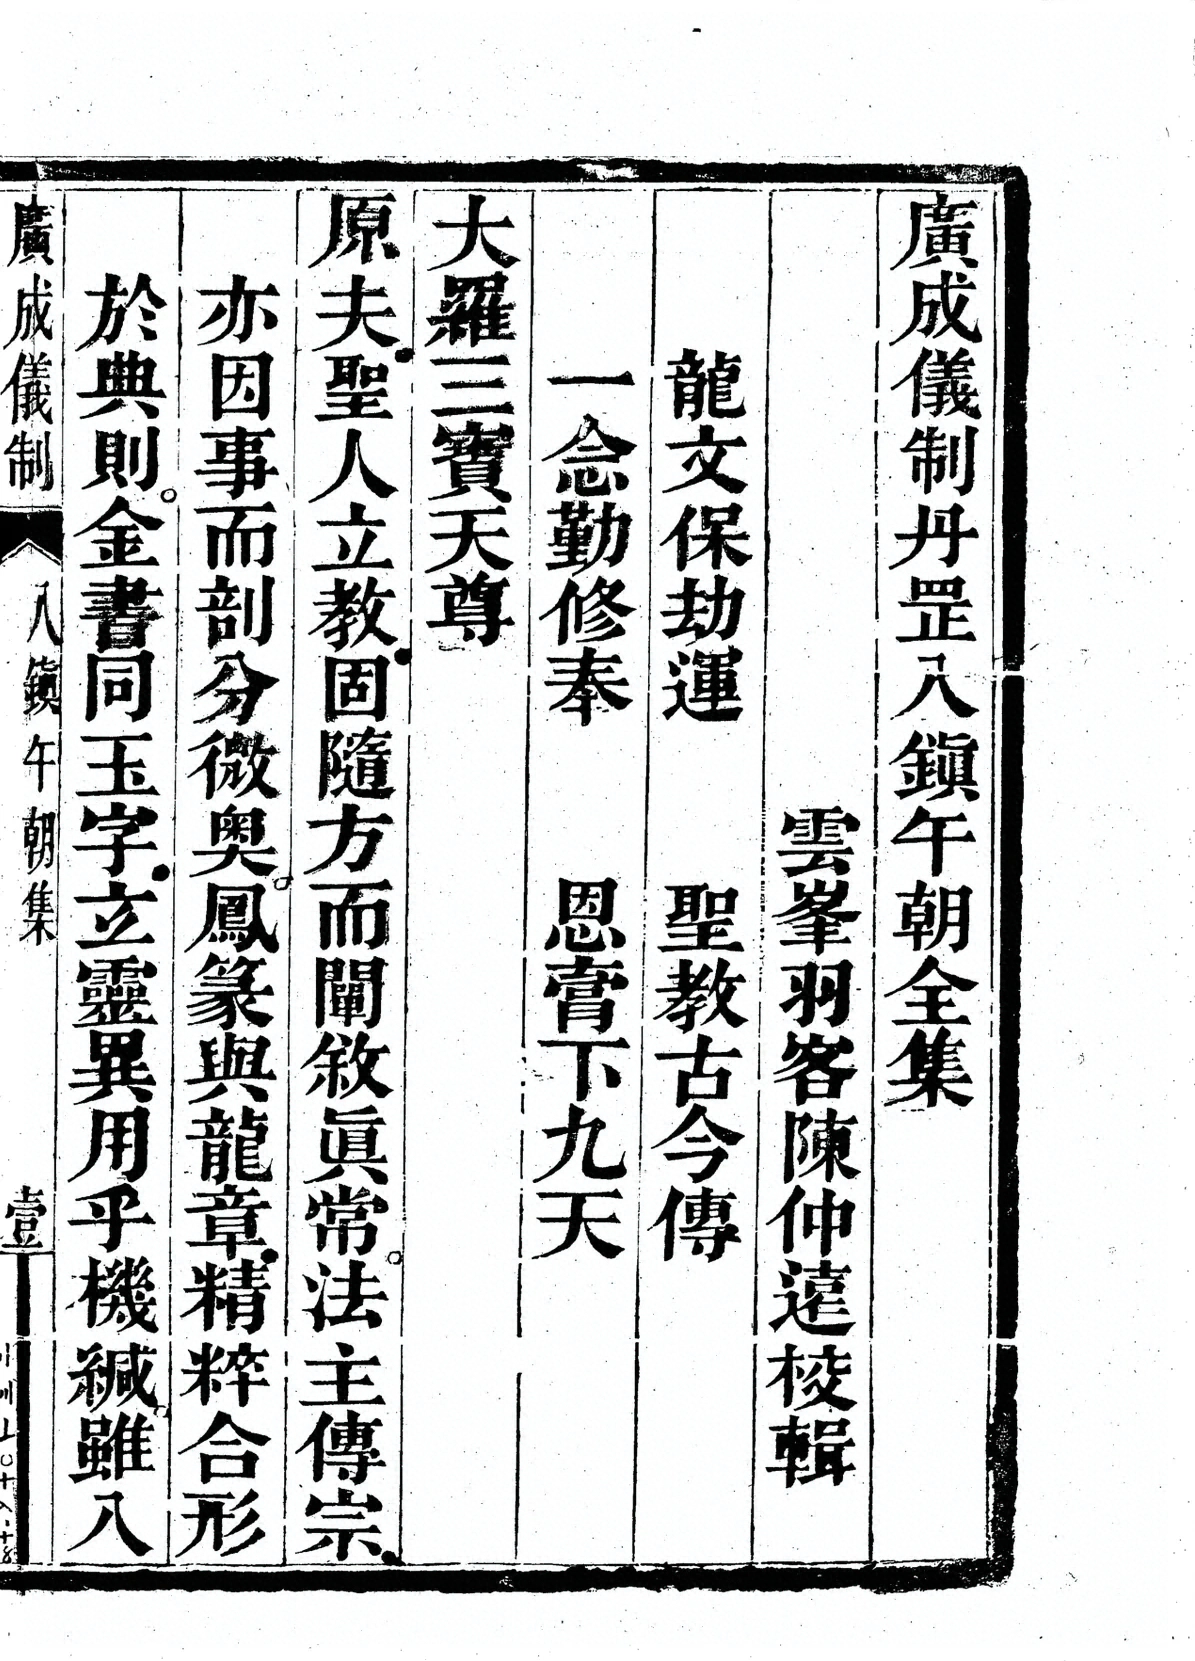 廣成儀制丹罡八鎭午朝全集
雲峯羽客陳仲遠校輯
龍文保劫運　聖教古今傳
一念勤修奉　恩膏下九天
大羅三寶天尊
原夫聖人立教固隨方而闡敘眞常法主傳宗
亦因事而剖分微奧鳳篆與龍章精粹合形
於典則金書同玉字立靈異用乎機緘雖八
廣成儀制　八鎭午朝集　壹